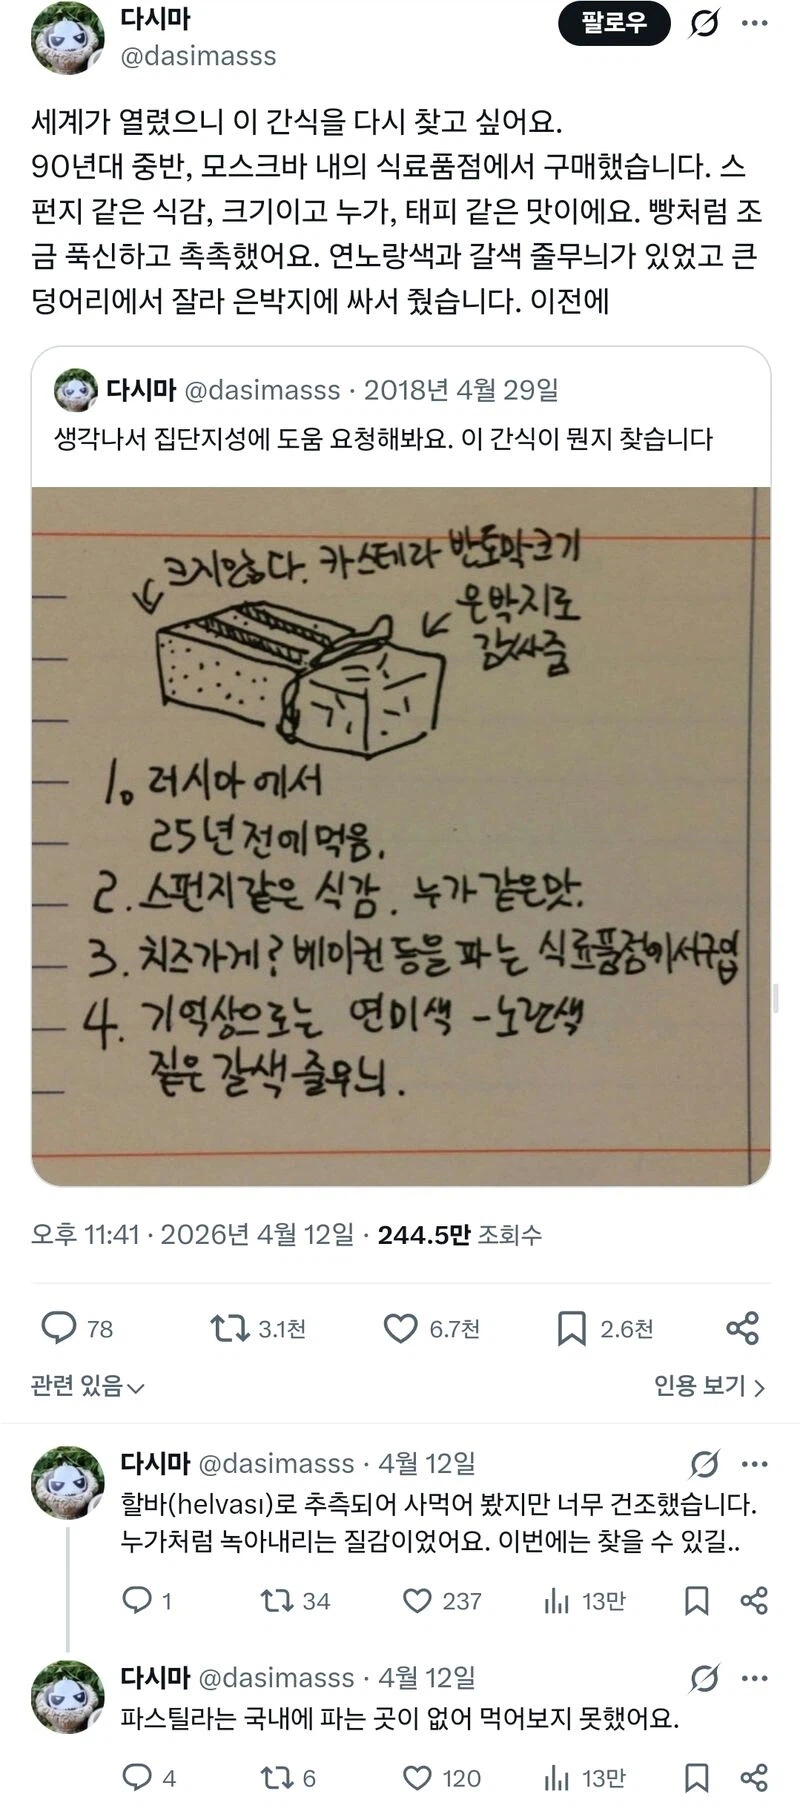 다시마
@dasimasss
팔로우
세계가 열렸으니 이 간식을 다시 찾고 싶어요.
90년대 중반, 모스크바 내의 식료품점에서 구매했습니다. 스
펀지 같은 식감, 크기이고 누가, 태피 같은 맛이에요. 빵처럼 조
금 푹신하고 촉촉했어요. 연노랑색과 갈색 줄무늬가 있었고 큰
덩어리에서 잘라 은박지에 싸서 줬습니다. 이전에
다시마 @dasimasss · 2018년 4월 29일
생각나서 집단지성에 도움 요청해봐요. 이 간식이 뭔지 찾습니다
크지않다. 카스테라 반토막크기
은박지로
감싸줌
1. 러시아에서
25년전에 먹음.
2. 스펀지같은 식감. 누가같은맛.
3. 치즈가게? 베이컨 등을 파는 식료품점에서구입
4. 기억상으로는 연미색 - 노란색
짙은 갈색 줄무늬.
오후 11:41 · 2026년 4월 12일 · 244.5만 조회수
78 3.1천 6.7천 2.6천
관련 있음 인용 보기
다시마 @dasimasss · 4월 12일
할바(helvası)로 추측되어 사먹어 봤지만 너무 건조했습니다.
누가처럼 녹아내리는 질감이었어요. 이번에는 찾을 수 있길..
1 34 237 13만
다시마 @dasimasss · 4월 12일
파스틸라는 국내에 파는 곳이 없어 먹어보지 못했어요.
4 6 120 13만